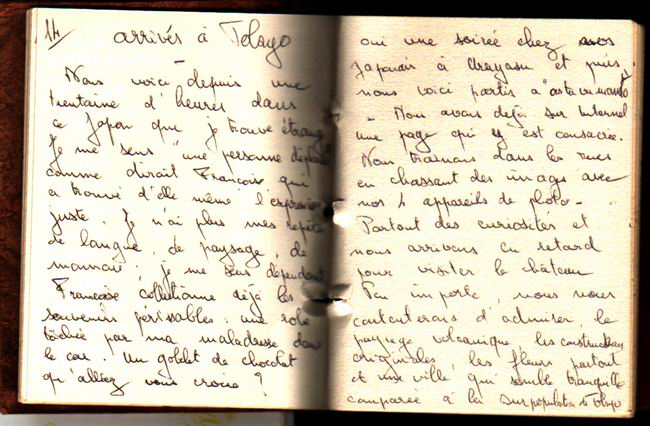 14/ arrivés à Tokyo
Nous voici depuis une
trentaine d'heures dans
ce Japon que je trouve étrange
Je me sens "une personne
comme dirait Françoise qui
a trouvé d'elle même l'expression
juste. Je n'ai plus mes repères
de langue, de paysage, de
monnaie ; je me sens dépendant
Françoise collectionne déjà les
souvenirs périssables : une robe
tâchée par ma maladresse dans
le car. Un gobelet de chocolat
qu'alliez vous croire ?
oui une soirée chez nos
Japonais à et puis
nous voici partis à
- Nous avons déjà sur Internet
une page qui y est consacrée.
Nous trainons dans les rues
en chassant des images avec
nos 4 appareils de photo -
Partout des curiosités et
nous arrivons en retard
pour visiter le château
Peu importe, nous nous
contenterons d'admirer le
paysage volcanique, les constructions
originales, les fleurs partout
et une ville qui semble tranquille
comparée à la surpopulation de Tokyo